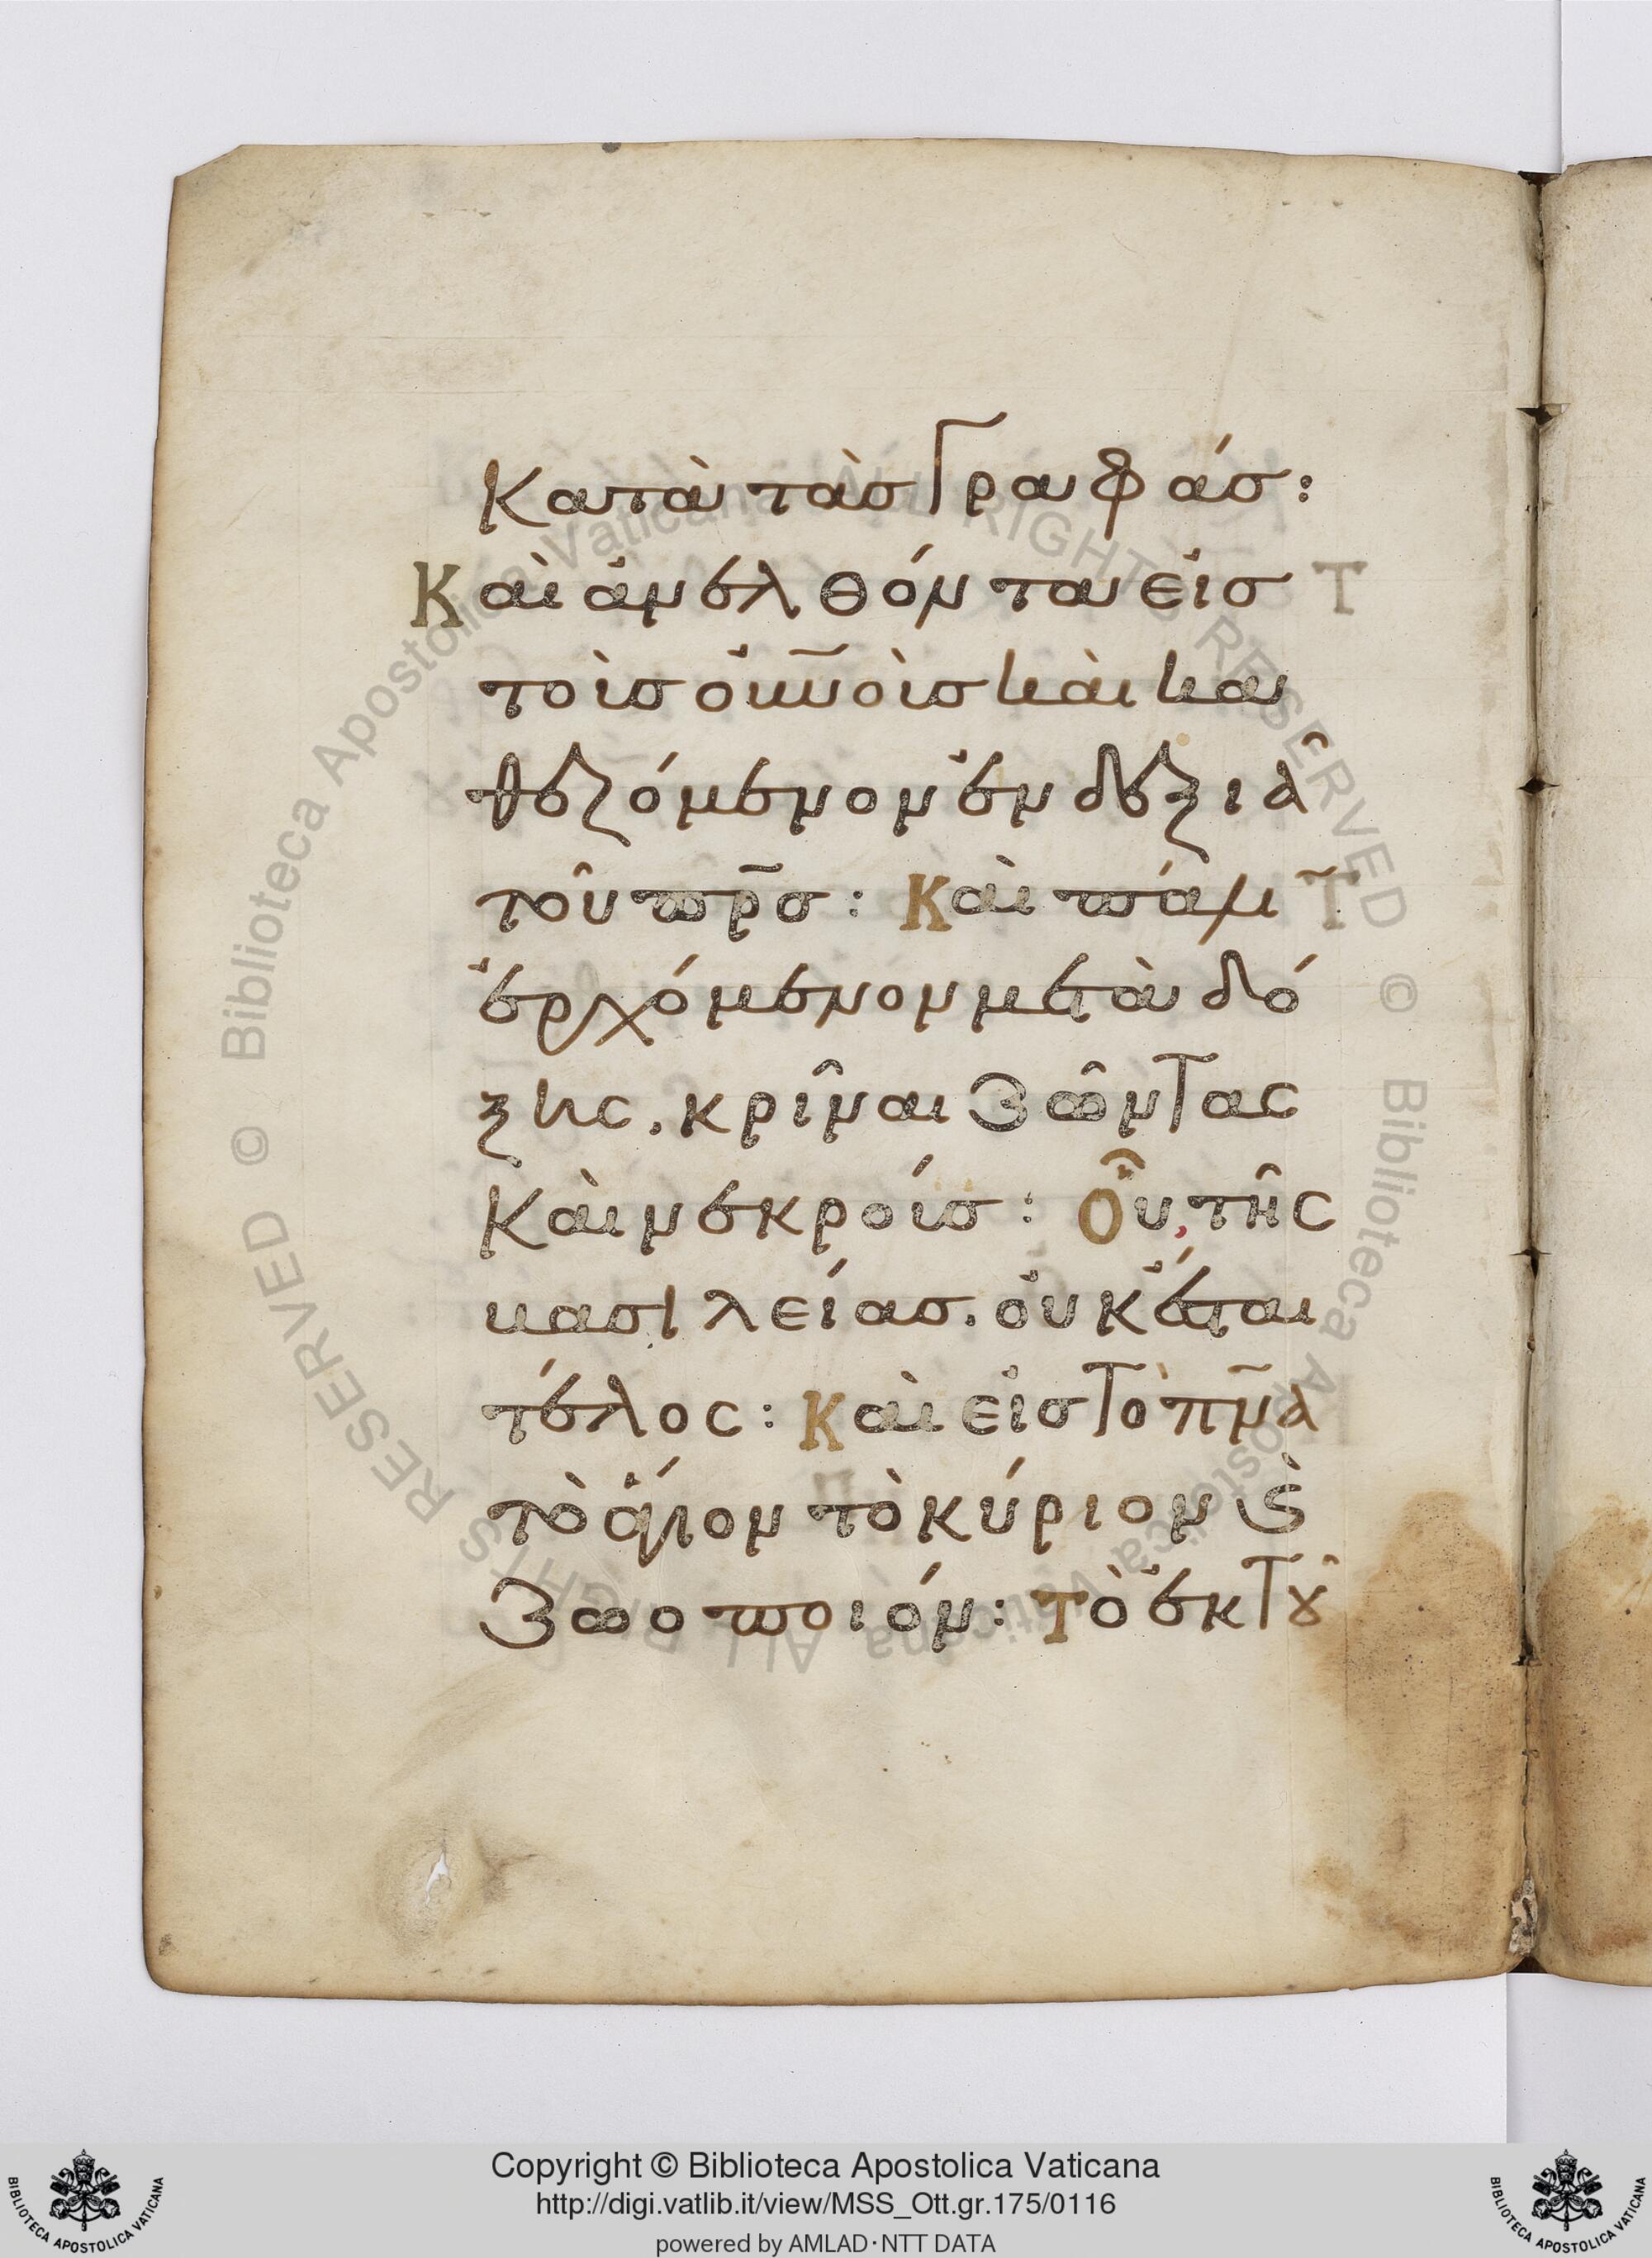 κατὰ τὰσ γραφάσ:
Καὶ ἀνελθόντα εἰσ
τοὶσ οὐν̅οὶσ καὶ κα
θεζόμενον ἐν δεξιᾶ
τοῦ πρ̅σ: Καὶ πάλι
ἐρχόμενον μετὰ δό
ξης. κρῖναι ζῶντας
καὶ νεκροίσ: Οὗ τῆς
βασιλείασ. οὐκ ἔσται
τέλος: Καὶ εἰσ τὸ πν̅α
τὸ ἅγιον τὸ κύριον ϗ̀
ζωοποιόν: Τὸ ἐκ τοῦ
© Biblioteca Apostolica Vaticana ALL RIGHTS RESERVED © Biblioteca Apostolica Vaticana ALL RIGHTS RESERVED
Copyright © Biblioteca Apostolica Vaticana
http://digi.vatlib.it/view/MSS_Ott.gr.175/0116
powered by AMLAD·NTT DATA
BIBLIOTECA APOSTOLICA VATICANA
BIBLIOTECA APOSTOLICA VATICANA